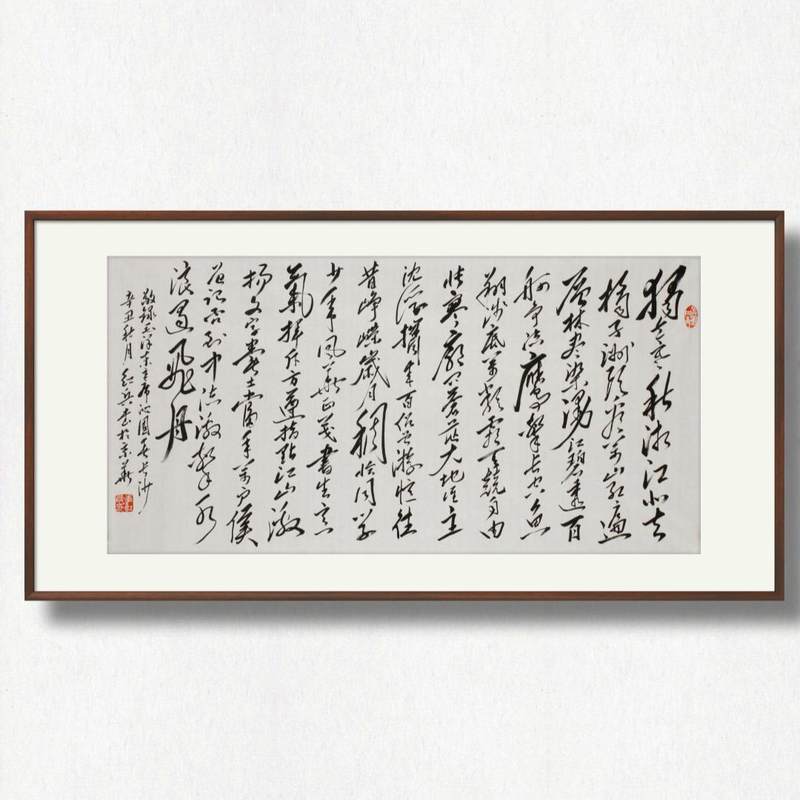 獨立寒秋湘江北去
橘子洲頭看萬山紅遍
層林尽染漫江碧透百
舸爭流鷹擊長空魚
翔淺底萬類霜天競自由
悵寥廓問蒼茫大地誰主
沈浮攜來百侶曾游憶往
昔崢嶸歲月稠恰同學
少年風華正茂書生意
氣揮斥方遒指點江山激
揚文字糞土當年萬户侯
曾記否到中流擊水
浪遏飛舟
敬録毛澤東主席沁園春長沙
辛丑秋月紅兵書於京華